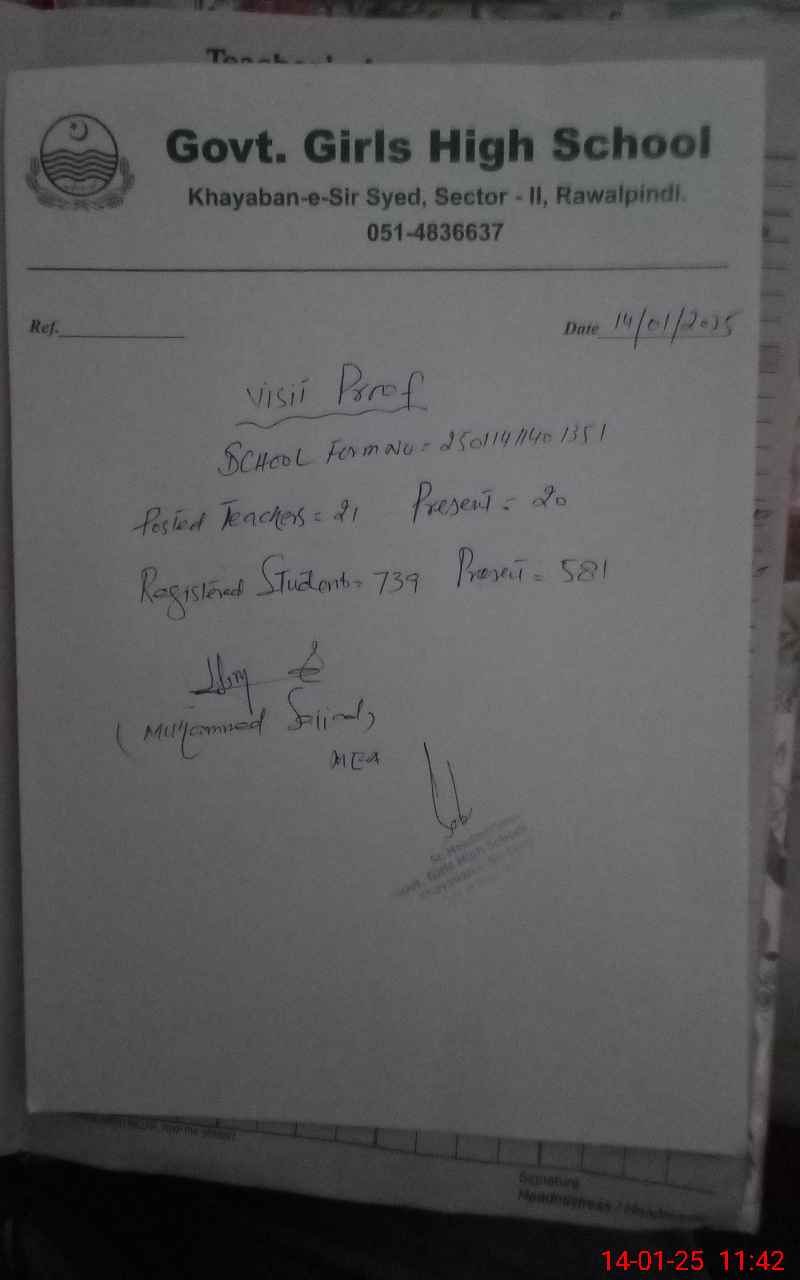 Govt. Girls High School
Khayaban-e-Sir Syed, Sector - II, Rawalpindi.
051-4836637
Ref. Date 14/01/2025
Visit Proof
SCHOOL Form No =
Posted Teachers = 21 Present = 20
Registered Students = 739 Present = 581
(Muhammad Sajjad)
MEA
Govt. Girls High School
Signature
14-01-25 11:42